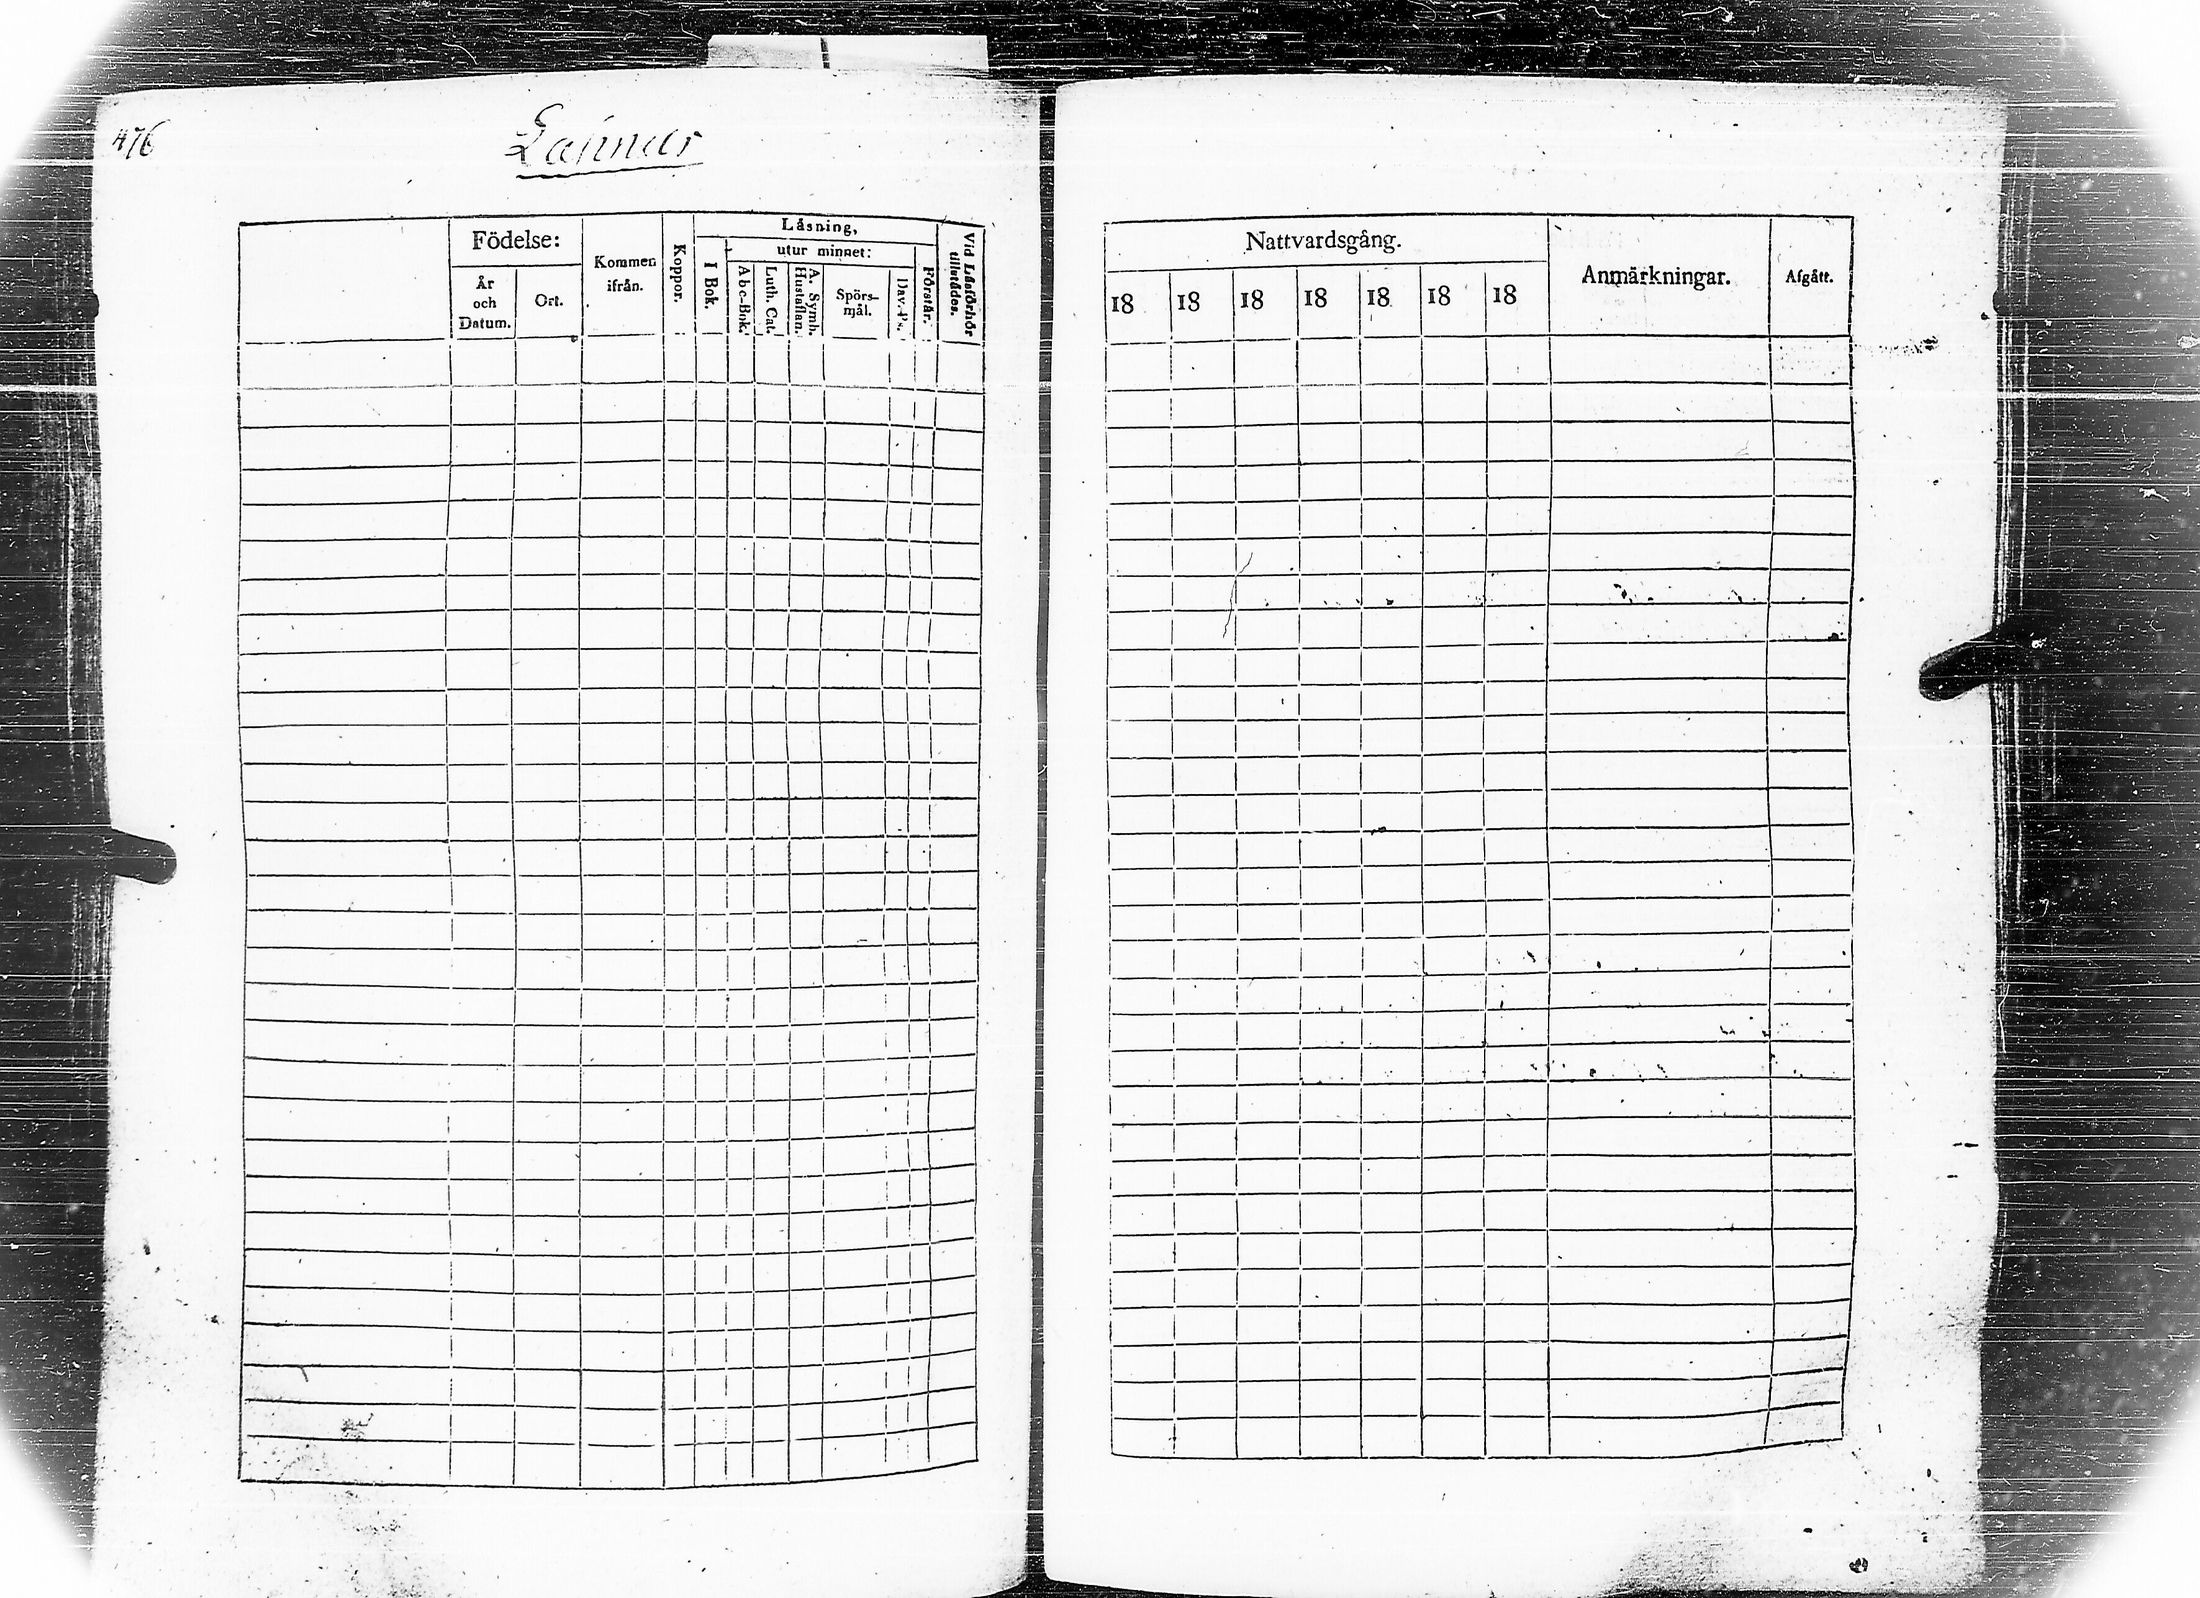 476
Födelse:
År
och
Datum.
Ort.
Kommen
ifrån.
Koppor.
Läsning,
I Bok.
utur minnet:
Abc-Bok.
Luth. Cat.
A. Symb.
Hustaflan.
Spörs-
mål.
Dav. Ps.
Förstår.
Vid Läsförhör
tillstädes.
Nattvardsgång.
18 18 18 18 18 18 18
Anmärkningar.
Afgått.